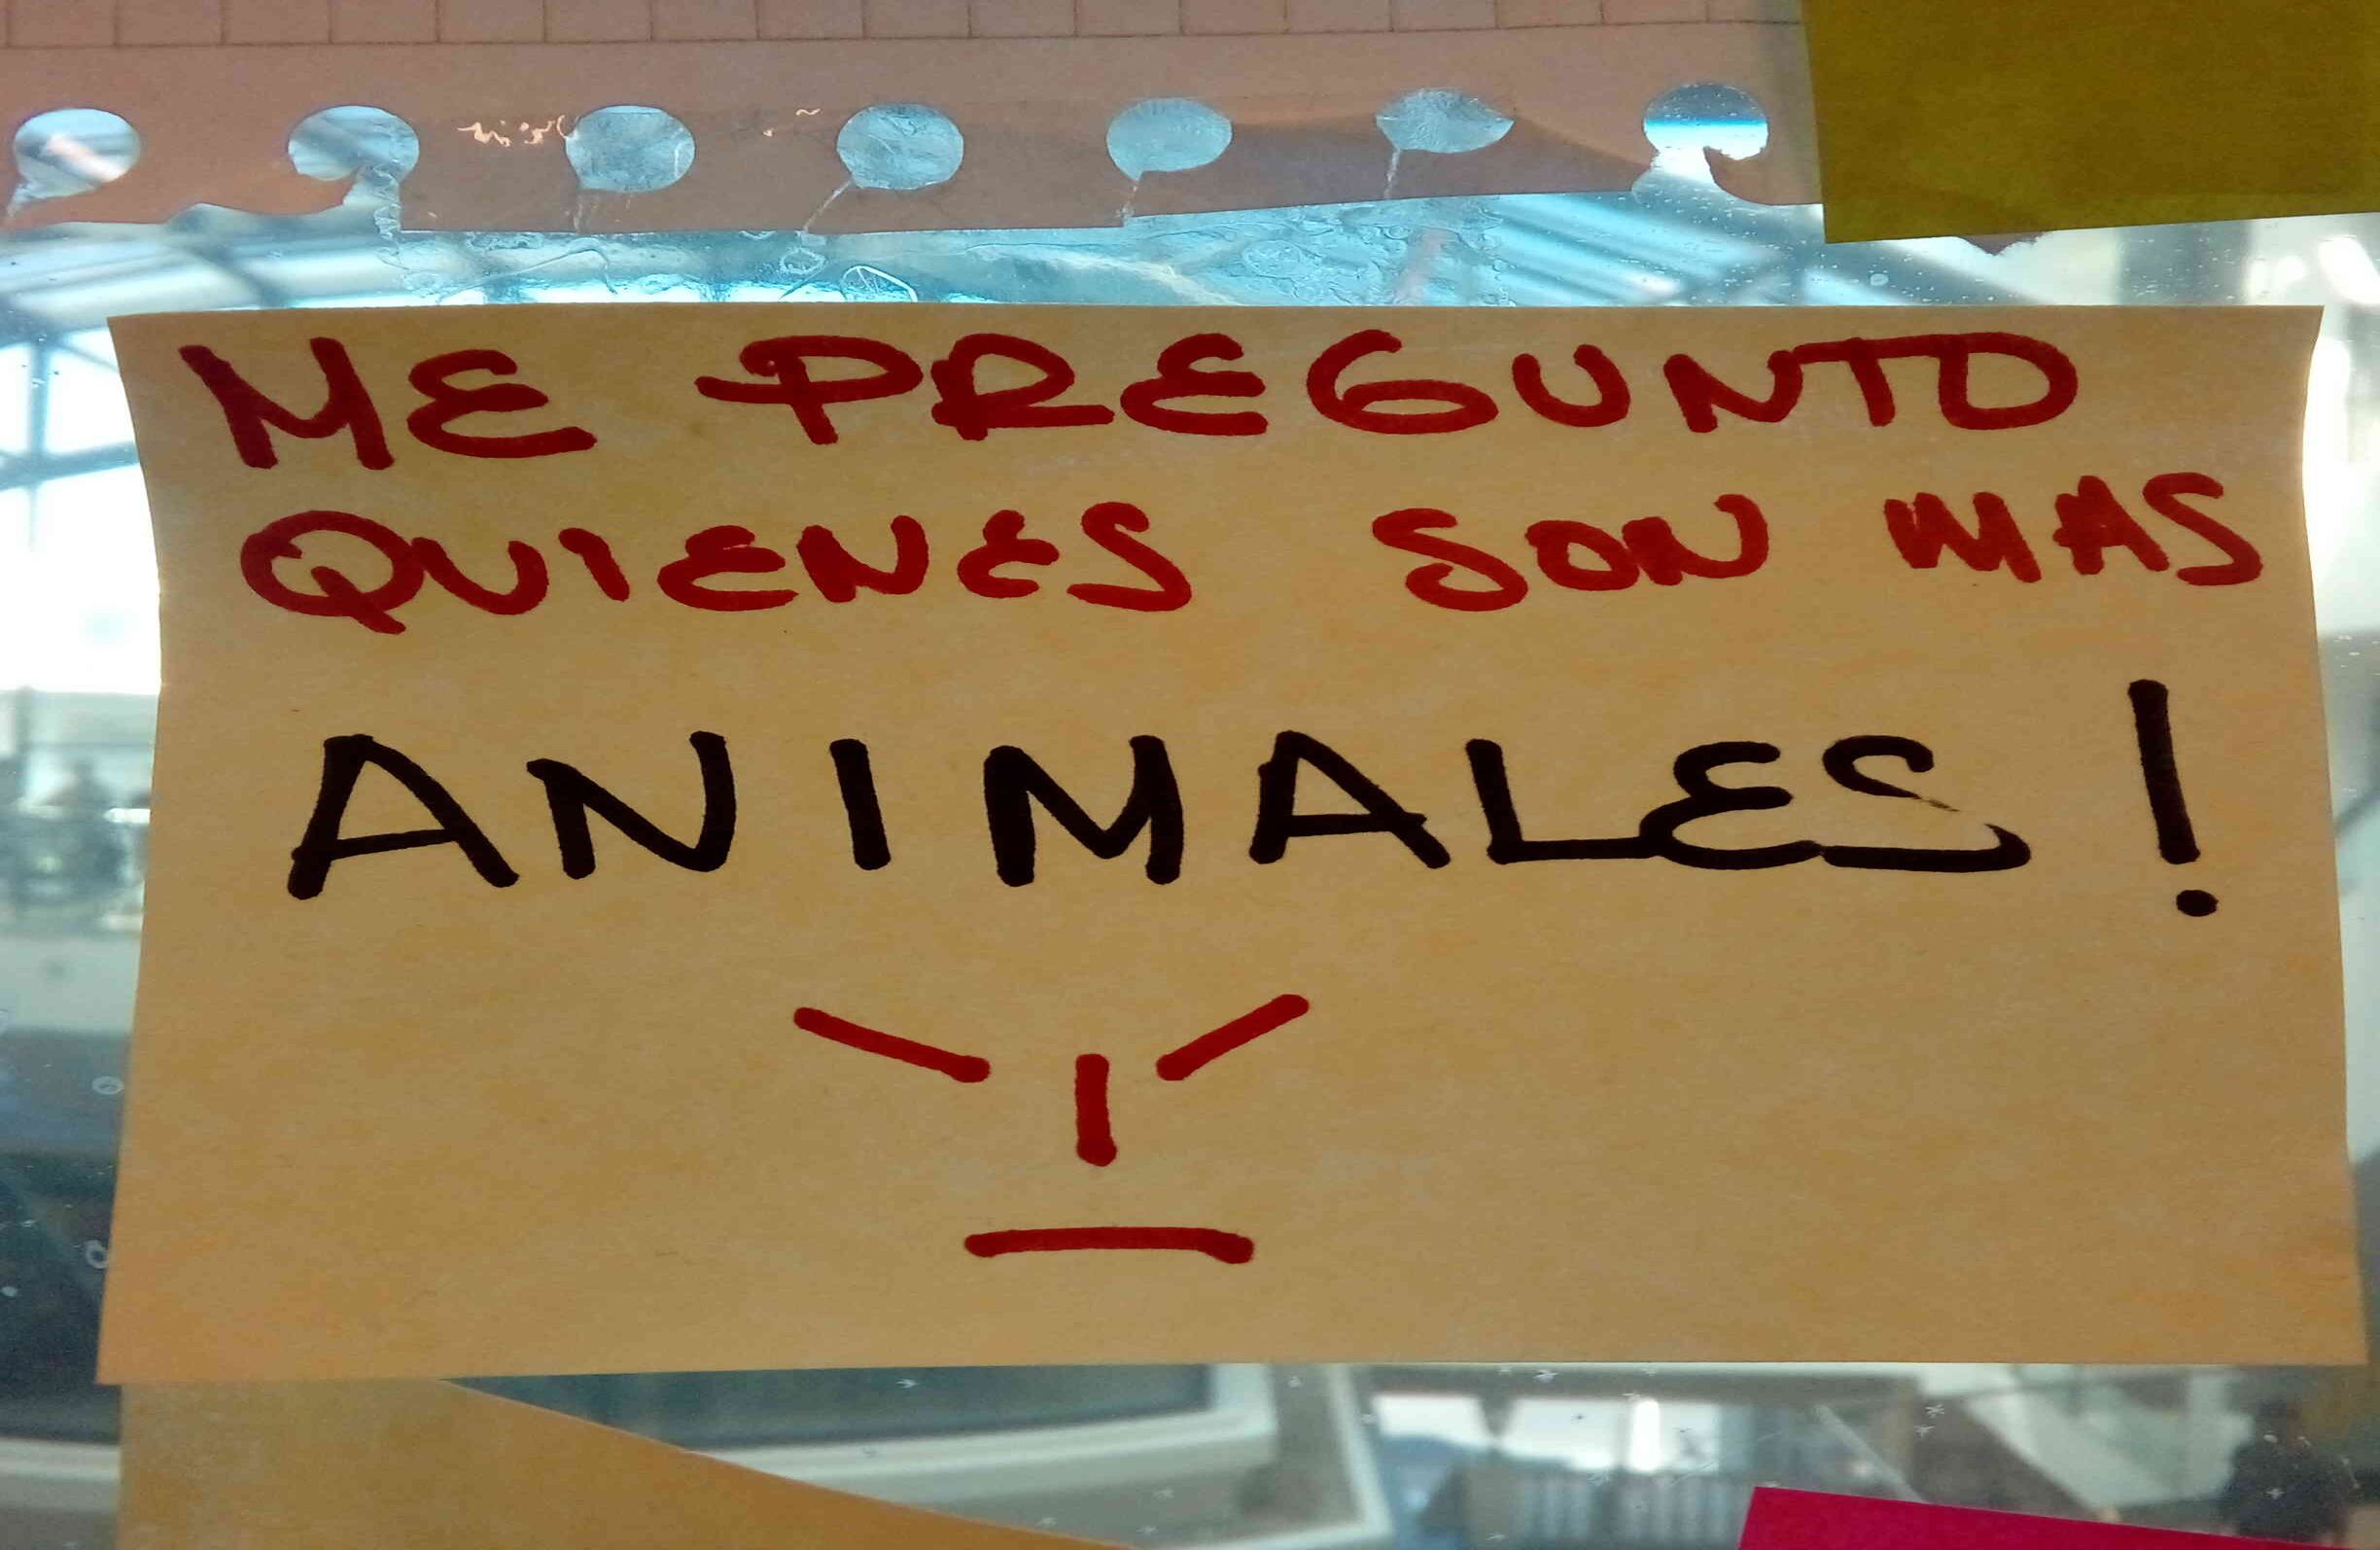 ME PREGUNTO
QUIENES SON MAS
ANIMALES!